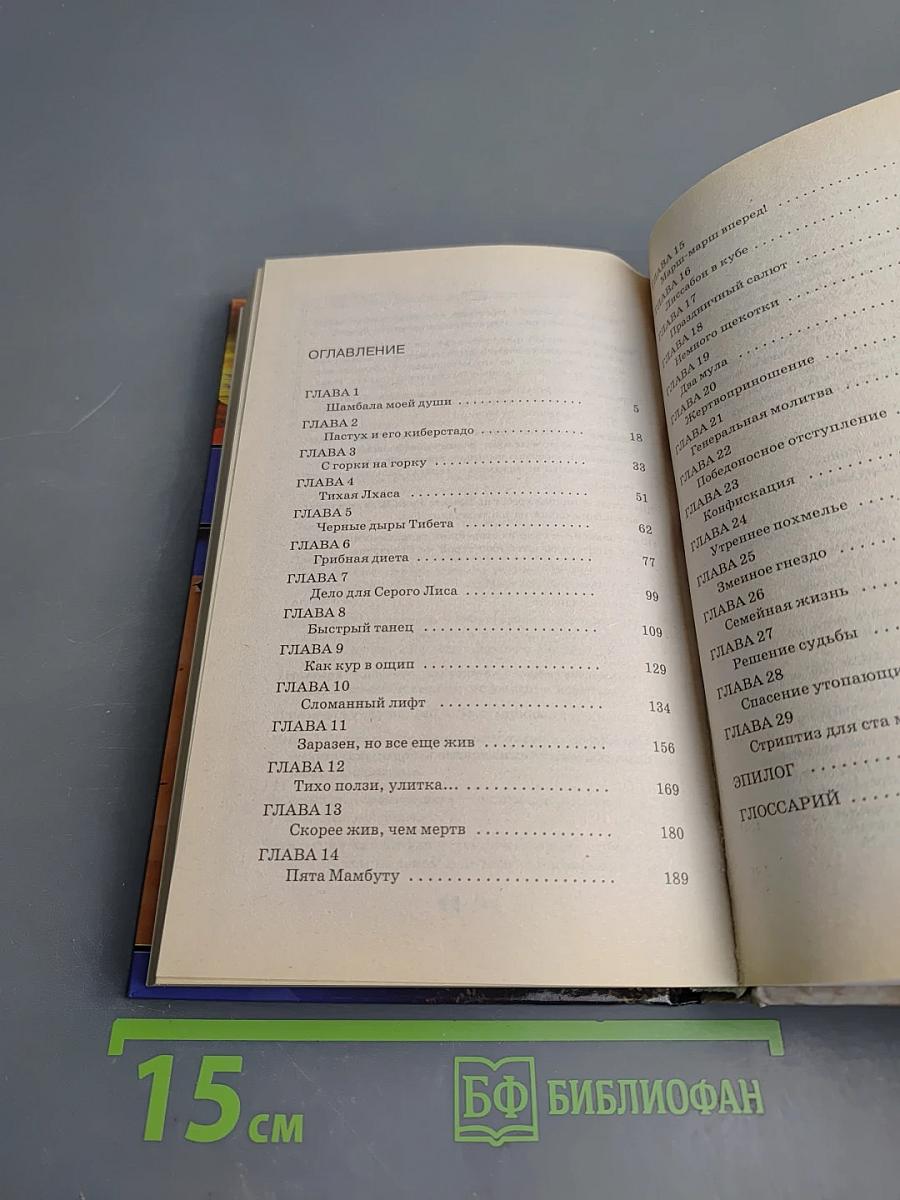 ОГЛАВЛЕНИЕ
ГЛАВА 1
Шамбала моей души . . . . . . . . . . . . . . . . 5
ГЛАВА 2
Пастух и его киберстадо . . . . . . . . . . . . . 18
ГЛАВА 3
С горки на горку . . . . . . . . . . . . . . . . . . . 33
ГЛАВА 4
Тихая Лхаса . . . . . . . . . . . . . . . . . . . . . . 51
ГЛАВА 5
Черные дыры Тибета . . . . . . . . . . . . . . . 62
ГЛАВА 6
Грибная диета . . . . . . . . . . . . . . . . . . . . 77
ГЛАВА 7
Дело для Серого Лиса . . . . . . . . . . . . . . . 99
ГЛАВА 8
Быстрый танец . . . . . . . . . . . . . . . . . . . 109
ГЛАВА 9
Как кур в ощип . . . . . . . . . . . . . . . . . . . 129
ГЛАВА 10
Сломанный лифт . . . . . . . . . . . . . . . . . 134
ГЛАВА 11
Заразен, но все еще жив . . . . . . . . . . . . . 156
ГЛАВА 12
Тихо ползи, улитка... . . . . . . . . . . . . . . . 169
ГЛАВА 13
Скорее жив, чем мертв . . . . . . . . . . . . . . 180
ГЛАВА 14
Пята Мамбуту . . . . . . . . . . . . . . . . . . . . . 189
ГЛАВА 15
Марш-марш вперед! . . . . . . . . . . . . . .
ГЛАВА 16
Лиссабон в кубе . . . . . . . . . . . . . .
ГЛАВА 17
Праздничный салют . . . . . . . . . . .
ГЛАВА 18
Немного щекотки . . . . . . . . . . . .
ГЛАВА 19
Два мула . . . . . . . . . . . . . . . .
ГЛАВА 20
Жертвоприношение . . . . . . . .
ГЛАВА 21
Генеральная молитва . . . . . . .
ГЛАВА 22
Победоносное отступление .
ГЛАВА 23
Конфискация . . . . . . . . . .
ГЛАВА 24
Утреннее похмелье . . . . .
ГЛАВА 25
Змеиное гнездо . . . . . .
ГЛАВА 26
Семейная жизнь . . . . .
ГЛАВА 27
Решение судьбы . . .
ГЛАВА 28
Спасение утопающи
ГЛАВА 29
Стриптиз для ста м
ЭПИЛОГ . . . . . . . . .
ГЛОССАРИЙ . . . . .
15 см
БФ БИБЛИОФАН